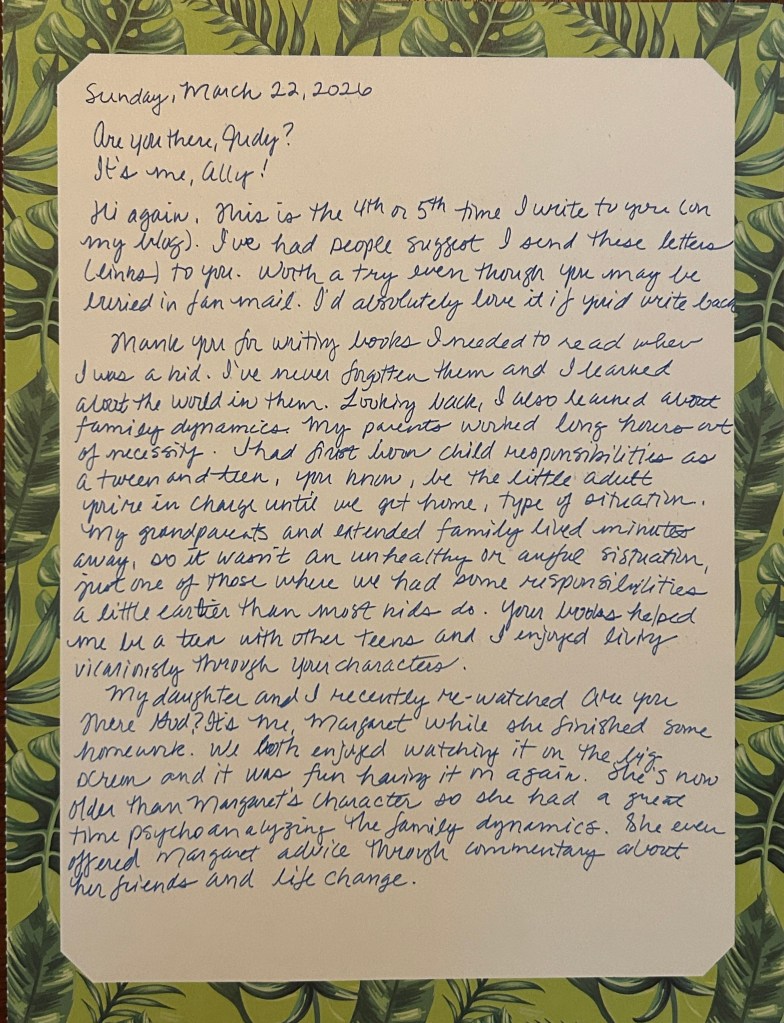 Sunday, March 22, 2026
Are you there, Judy?
It's me, Ally!
Hi again. This is the 4th or 5th time I write to you (on
my blog). I've had people suggest I send these letters
(links) to you. Worth a try even though you may be
buried in fan mail. I'd absolutely love it if you'd write back
Thank you for writing books I needed to read when
I was a kid. I've never forgotten them and I learned
about the world in them. Looking back, I also learned about
family dynamics. My parents worked long hours out
of necessity. I had first born child responsibilities as
a tween and teen, you know, be the little adult
you're in charge until we get home, type of situation.
My grandparents and extended family lived minutes
away, so it wasn't an unhealthy or awful sistuation,
just one of those where we had some responsibilities
a little earlier than most kids do. Your books helped
me be a teen with other teens and I enjoyed living
vicariously through your characters.
My daughter and I recently re-watched Are you
There God? It's Me, Margaret while she finished some
homework. We both enjoyed watching it on the big
screen and it was fun having it on again. She's now
older than Margaret's character so she had a great
time psychoanalyzing the family dynamics. She even
offered Margaret advice through commentary about
her friends and life change.